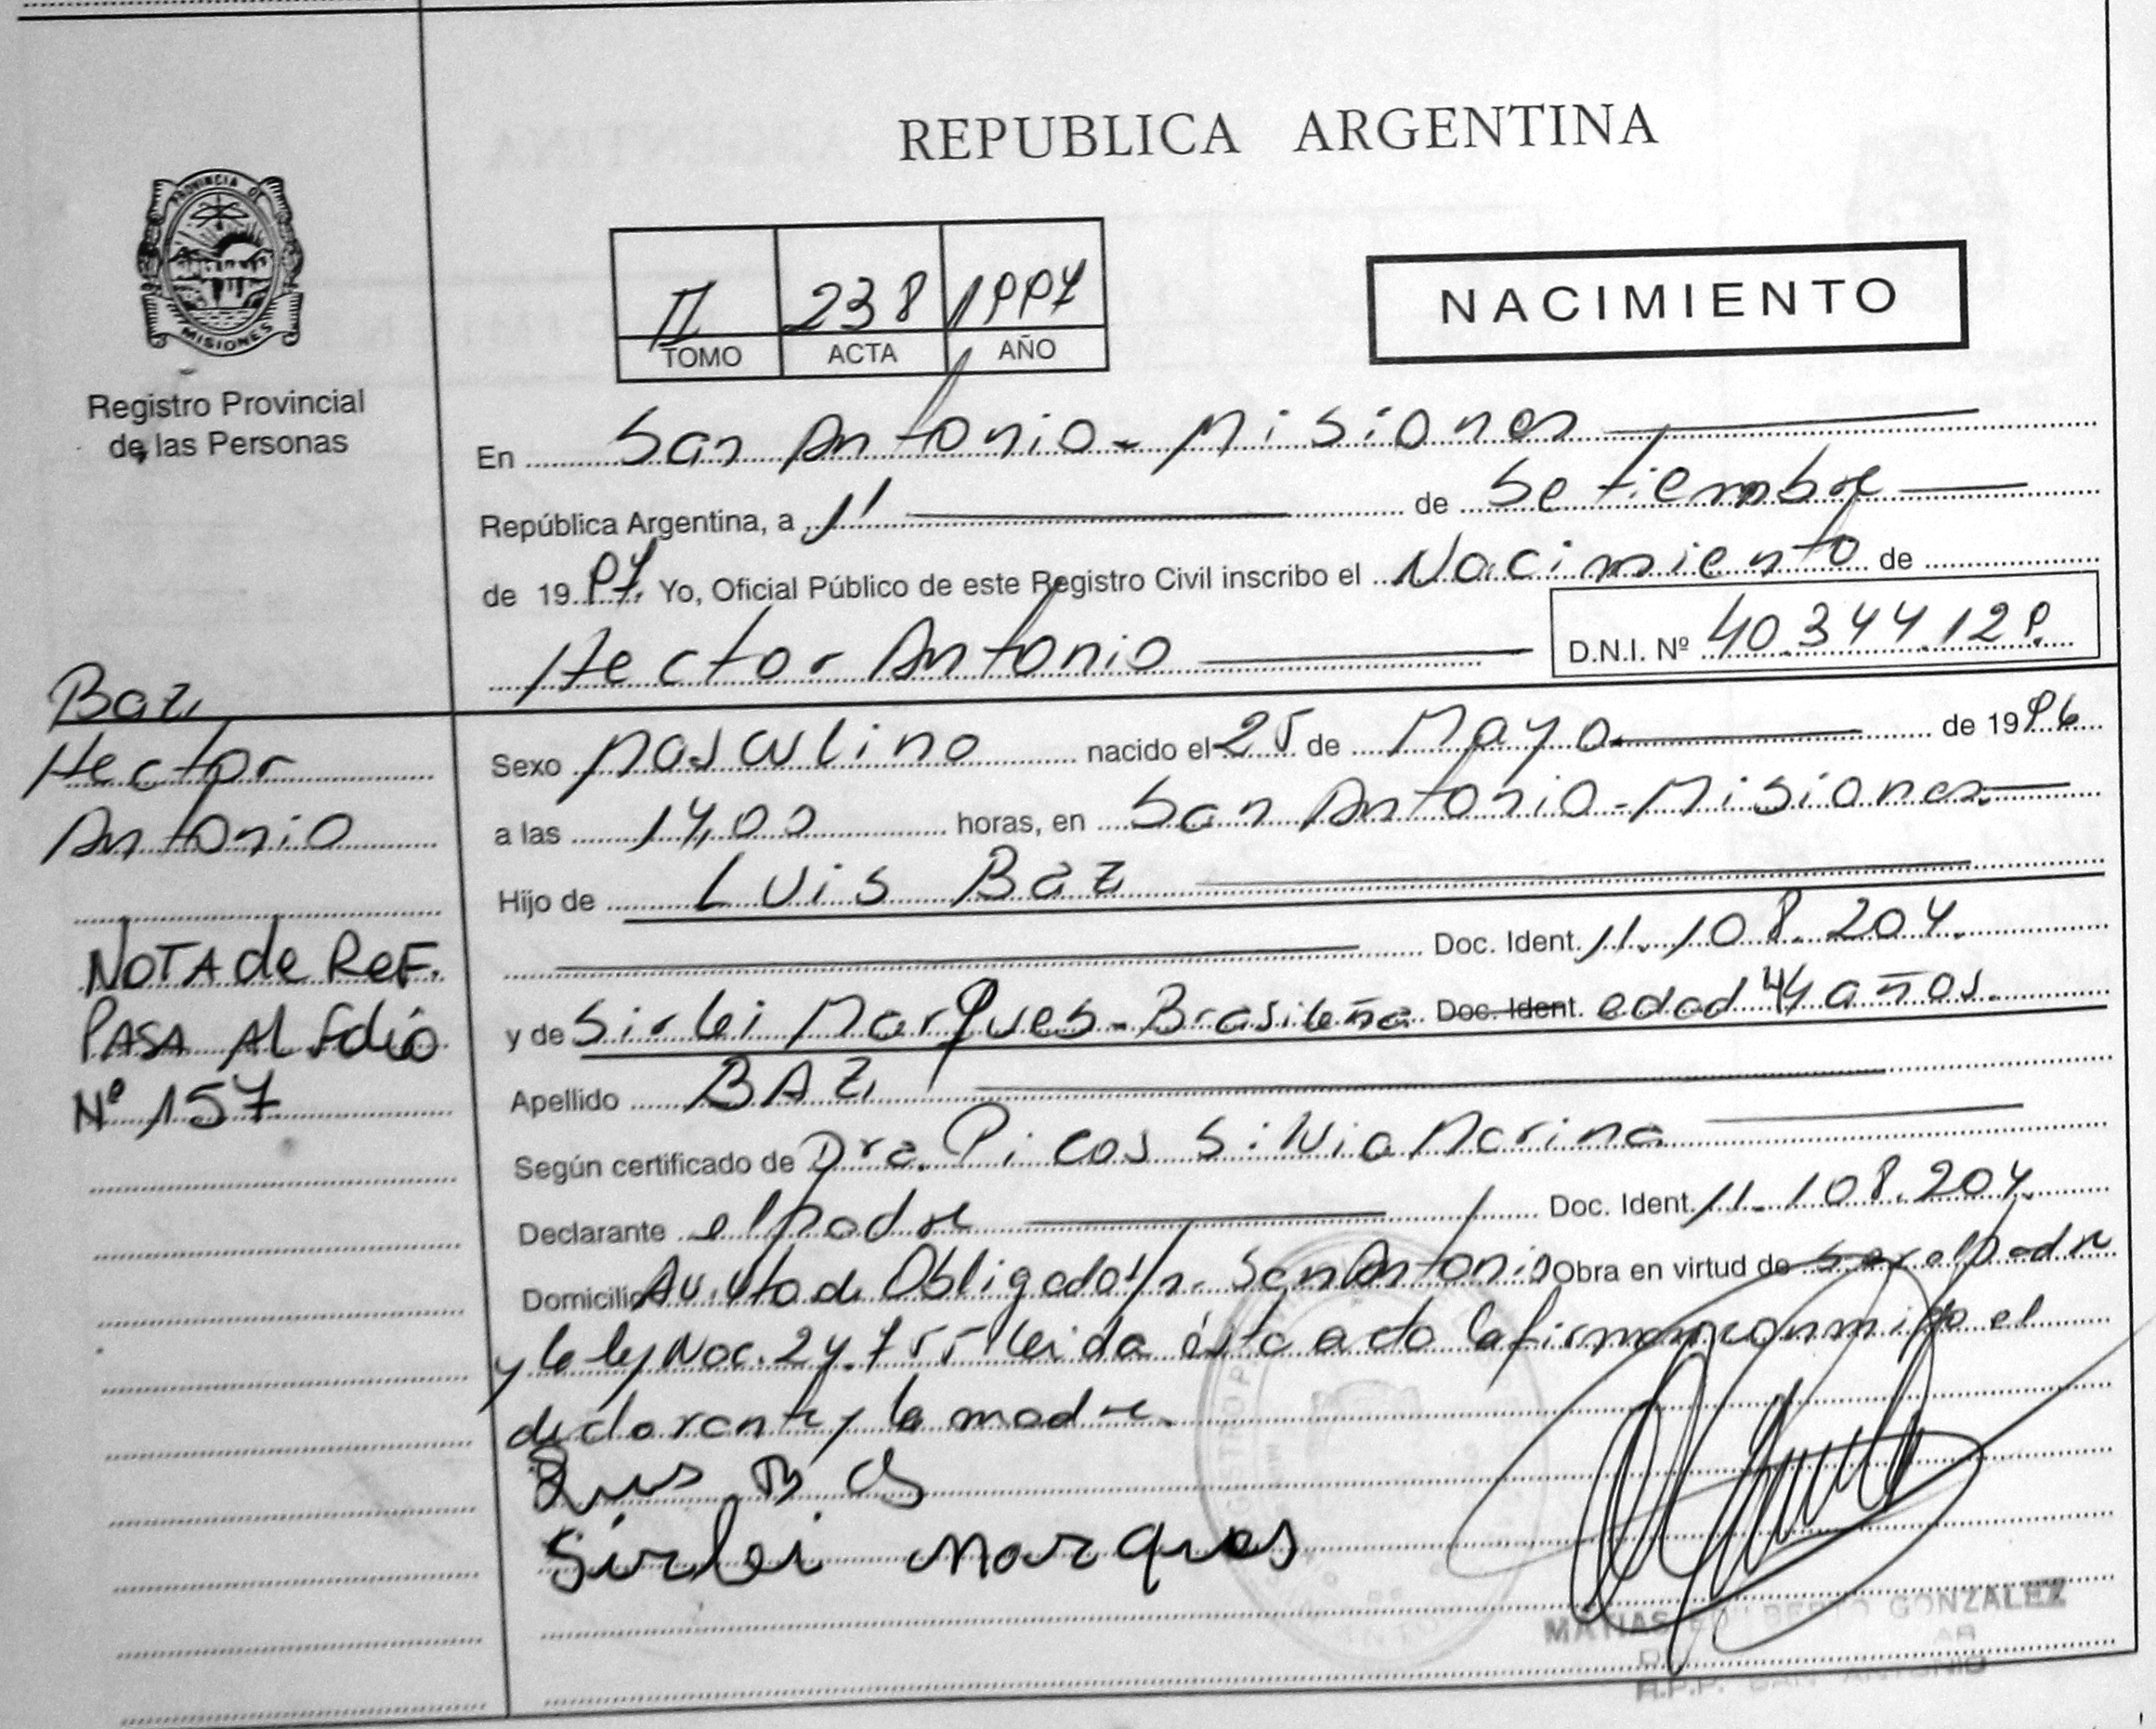 REPUBLICA ARGENTINA
PROVINCIA DE
MISIONES
Registro Provincial
de las Personas
II 238 1997
TOMO ACTA AÑO
NACIMIENTO
En San Antonio - Misiones
República Argentina, a 11 de Setiembre
de 1997. Yo, Oficial Público de este Registro Civil inscribo el Nacimiento de
Hector Antonio D.N.I. Nº 40.344.129.
Baz
Hector
Antonio
NOTA de REF.
PASA Al folio
Nº 157
Sexo Masculino nacido el 25 de Mayo de 1996
a las 14,00 horas, en San Antonio - Misiones.
Hijo de Luis Baz
Doc. Ident. 11.108.204.
y de Sirlei Marques - Brasileña Doc. Ident. edad 44 años.
Apellido BAZ
Según certificado de Dra. Picos Silvia Marina
Declarante el padre Doc. Ident. 11.108.204.
Domicilio Av. Vta de Obligado s/n. San Antonio Obra en virtud de ser el padre
y la ley Nac. 24.755 - leida ésta acta la firman conmigo el
declarante y la madre.
Luis
Sirlei Marques
MATIAS GONZALEZ
R.P.P. SAN ANTONIO